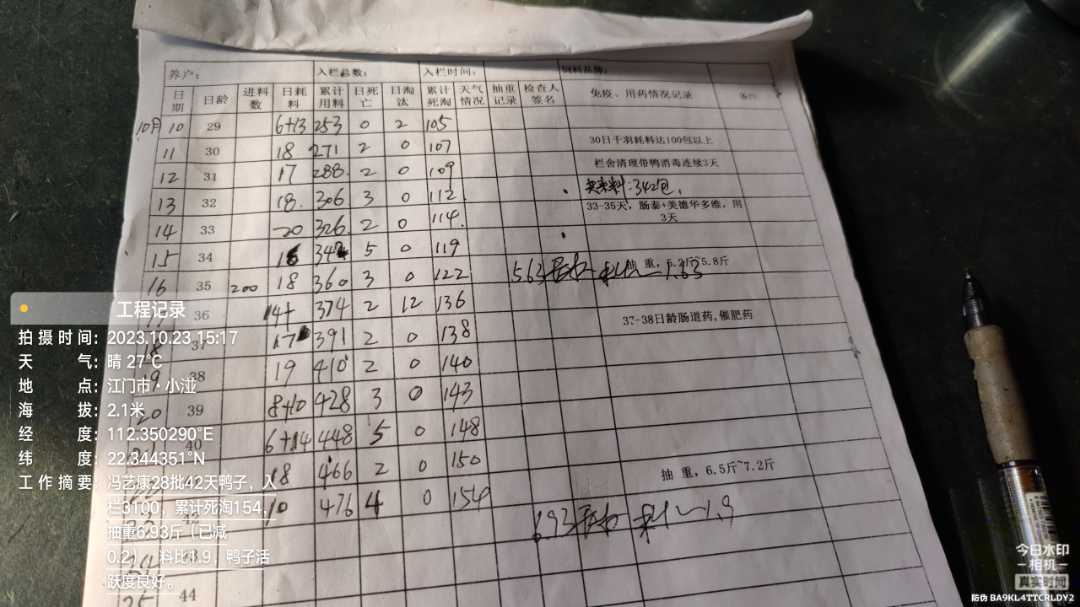 养户： 入栏总数： 入栏时间： 饲料品牌：
日期 日龄 进料数 日耗料 累计用料 日死亡 日淘汰 累计死淘 天气情况 抽重记录 检查人签名 免疫、用药情况记录 备注
10月10 29 6+13 253 0 2 105
11 30 18 271 2 0 107 30日千羽耗料达100包以上
12 31 17 288 2 0 109 栏舍清理带鸭消毒连续3天
13 32 18. 306 3 0 112 342包.
14 33 20 326 2 0 114 33-35天，肠泰+美德华多维，用3天
15 34 342 5 0 119
16 35 200 18 360 3 0 122 5.63 抽重，5.8斤
36 14+ 374 2 12 136
37 17 391 2 0 138 37-38日龄肠道药,催肥药
38 19 410 2 0 140
20 39 8+10 428 3 0 143
40 6+14 448 5 0 148
18 466 2 0 150 抽重，6.5斤~7.2斤
10 476 4 0 154 6.93 1.9
24
25 44
工程记录
拍摄时间：2023.10.23 15:17
天气：晴 27℃
地点：江门市·小湴
海拔：2.1米
经度：112.350290°E
纬度：22.344351°N
工作摘要：冯艺康28批42天鸭子，入
栏3100，累计死淘154，
抽重6.93斤（已减
0.2），料比1.9，鸭子活
跃度良好。
今日水印
相机
真实时间
防伪 BA9KL4TTCRLDY2